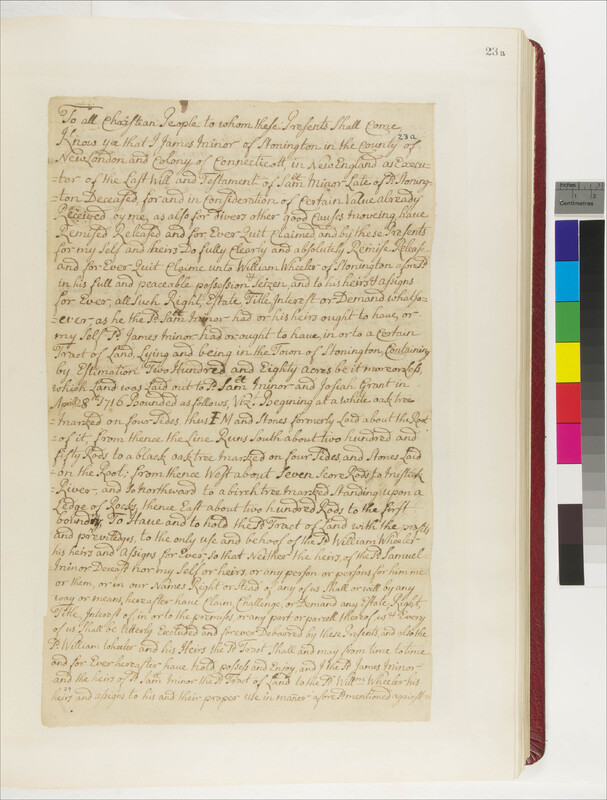 23a
23a
To all Christian People to whom these Presents Shall Come
Know ye that I James minor of Stonington in the County of
New London and Colony of Connecticott in New England as Execu-
-tor of the Last Will and Testament of Saml Minor Late of sd Stoning-
ton Deceased, for and in Consideration of Certain Value already
Received by me, as also for divers other good Causes moveing, have
Remised Released and for Ever Quit Claimed, and by these Presents
for my Self and heirs Do fully Clearly and absolutely Remise Release
and for Ever Quit Claime unto William Wheeler of Stonington aforesd
in his full and peaceable possession & Seizen, and to his heirs & assigns
for Ever, all Such Right, Estate, Title, Interest or Demand whatso-
-ever as he the sd Saml Minor had or his heirs ought to have, or
my Self sd James minor had or ought to have, in or to a Certain
Tract of Land, Lying and being in the Town of Stonington Containing
by Estimation Two Hundred and Eighty Acres be it more or less,
which Land was Laid out to sd Saml Minor and Josiah Grant in
April 28th 1716 Bounded as follows, Vizt Begining at a white oak tree
-marked on four Sides thus I M and Stones formerly Laid about the Root
-of it from thence the Line Runs South about two hundred and
fifty Rods to a black oak tree marked on four Sides, and Stones Laid
-on the Root: from thence West about Seven Score Rods to mistick
River, and So Northward to a birch tree marked Standing upon a
Ledge of Rocks, thence East about two hundred Rods to the first
bounds, To Have and to hold the sd Tract of Land with the profits
and previledges, to the only use and behoof of the sd William Wheeler
his heirs and Assigns for Ever, So that Neither the heirs, of the sd Samuel
Minor Deceast nor my Self or heirs, or any person or persons for him me
or them, or in our Names Right or Stead of any of us Shall or will by any
way or means, hereafter have Claim, Challenge, or Demand any Estate, Right,
Title, Interest of in or to the premises, or any part or parcell thereof Every
of us Shall be Utterly Excluded and forever Debarred by these Presents, and also the
sd William wheeler and his Heirs the sd Tract Shall and may from time to time
and for Ever hereafter have hold, posses and Enjoy, and I the sd James Minor
and the heirs of sd Saml Minor the sd Tract of Land to the sd Willm Wheeler his
heirs and assigns to his and their proper use in maner aforesd mentioned against